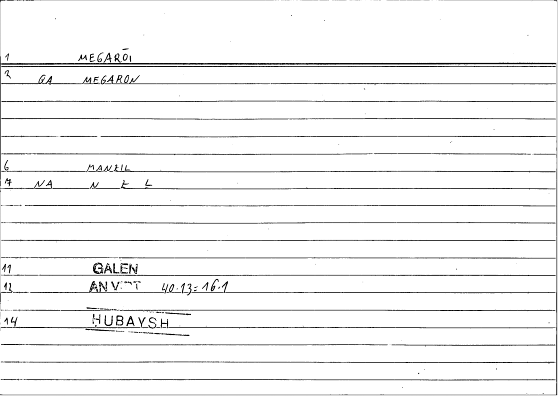 1 MEGARŌI
2 GA MEGARON
6 MANZIL
7 NA N Z L
11 GALEN
12 ANV 40.13=16.1
14 HUBAYSH